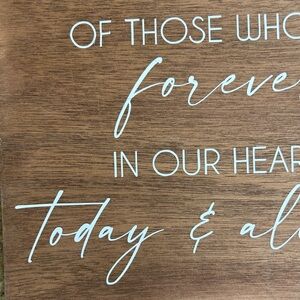 OF THOSE WHO
foreve
IN OUR HEAR
Today & al